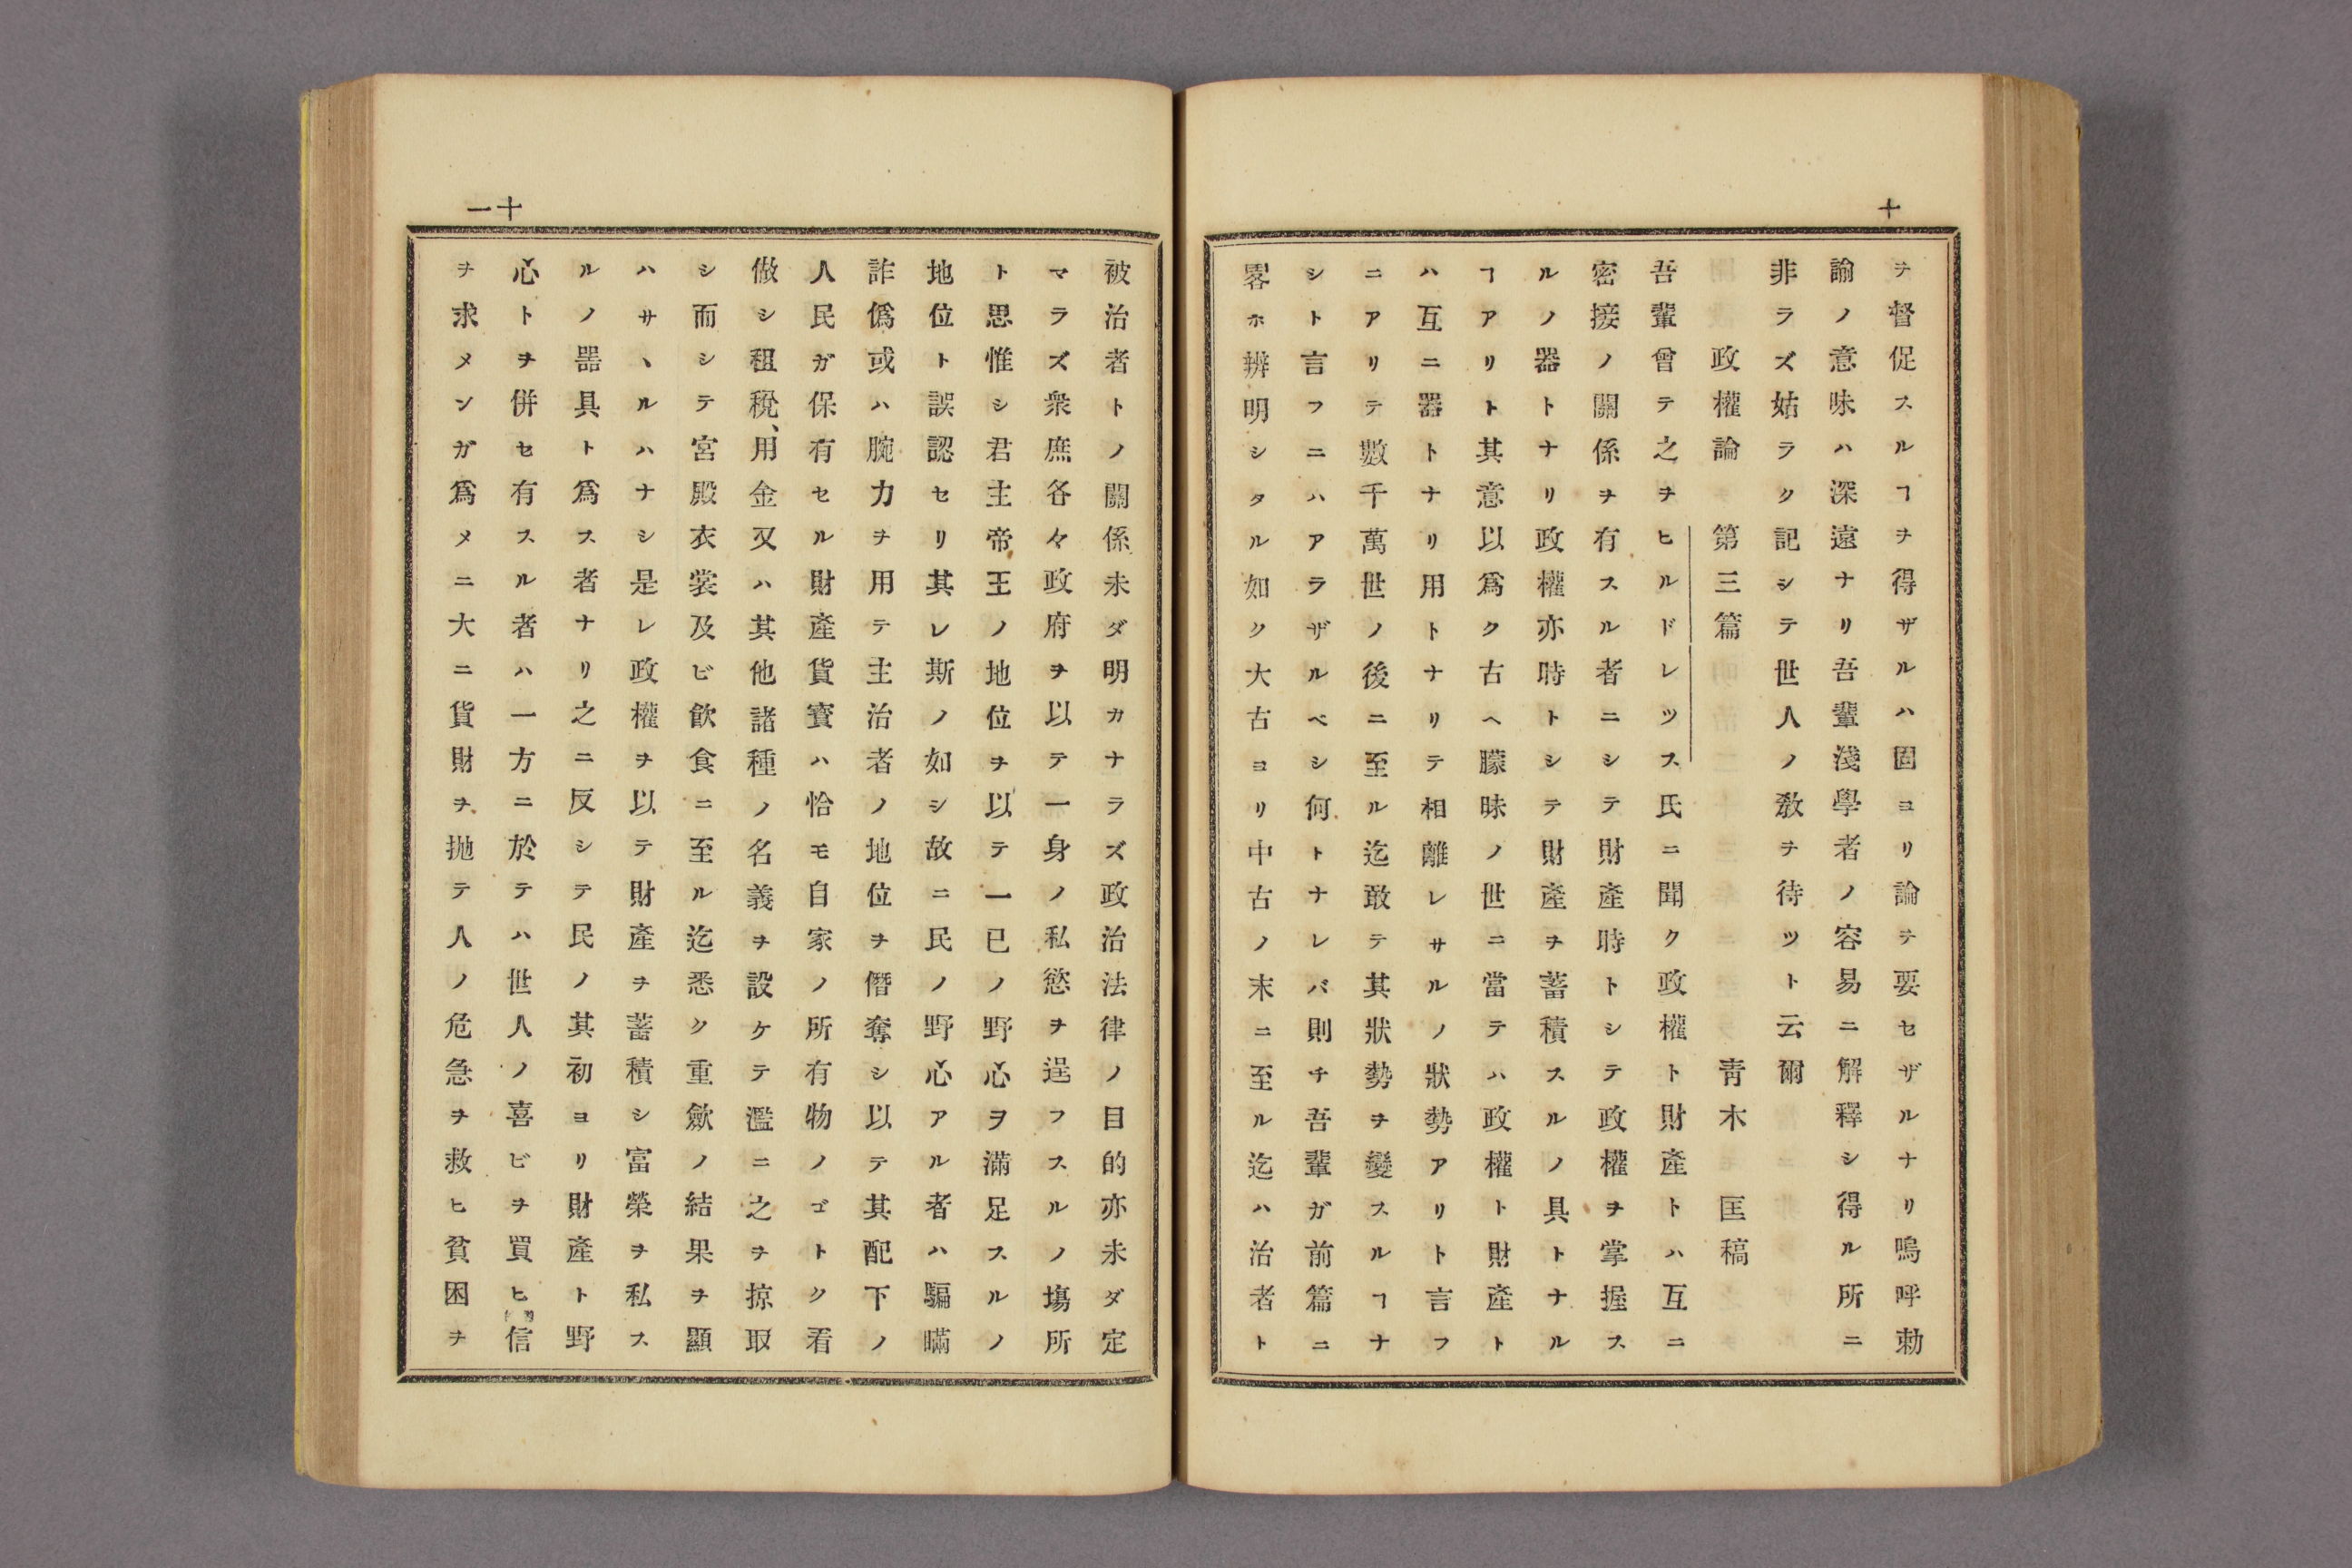 十
ヲ督促スルヿヲ得ザルハ固ヨリ論テ要セザルナリ嗚呼勅
諭ノ意味ハ深遠ナリ吾輩淺學者ノ容易ニ解釋シ得ル所ニ
非ラズ姑ラク記シテ世人ノ敎ヲ待ツト云爾
政權論 第三篇 靑木匡稿
吾輩曾テ之ヲヒルドレツス氏ニ聞ク政權ト財產トハ互ニ
密接ノ關係ヲ有スル者ニシテ財產時トシテ政權ヲ掌握ス
ルノ器トナリ政權亦時トシテ財產ヲ蓄積スルノ具トナル
ヿアリト其意以爲ク古ヘ朦昧ノ世ニ當テハ政權ト財產ト
ハ互ニ器トナリ用トナリテ相離レサルノ狀勢アリト言フ
ニアリテ數千萬世ノ後ニ至ル迄敢テ其狀勢ヲ變スルヿナ
シト言フニハアラザルベシ何トナレバ則チ吾輩ガ前篇ニ
畧ホ辨明シタル如ク大古ヨリ中古ノ末ニ至ル迄ハ治者ト
十一
被治者トノ關係未ダ明カナラズ政治法律ノ目的亦未ダ定
マラズ衆庶各々政府ヲ以テ一身ノ私慾ヲ逞フスルノ塲所
ト思惟シ君主帝王ノ地位ヲ以テ一已ノ野心ヲ滿足スルノ
地位ト誤認セリ其レ斯ノ如シ故ニ民ノ野心アル者ハ騙瞞
詐僞或ハ腕力ヲ用テ主治者ノ地位ヲ僭奪シ以テ其配下ノ
人民ガ保有セル財產貨寳ハ恰モ自家ノ所有物ノゴトク看
做シ租稅、用金又ハ其他諸種ノ名義ヲ設ケテ濫ニ之ヲ掠取
シ而シテ宮殿衣裳及ビ飮食ニ至ル迄悉ク重歛ノ結果ヲ顯
ハサヽルハナシ是レ政權ヲ以テ財產ヲ蓄積シ富榮ヲ私ス
ルノ噐具ト爲ス者ナリ之ニ反シテ民ノ其初ヨリ財產ト野
心トヲ併セ有スル者ハ一方ニ於テハ世人ノ喜ビヲ買ヒ信
ヲ求メンガ爲メニ大ニ貨財ヲ抛テ人ノ危急ヲ救ヒ貧困ヲ